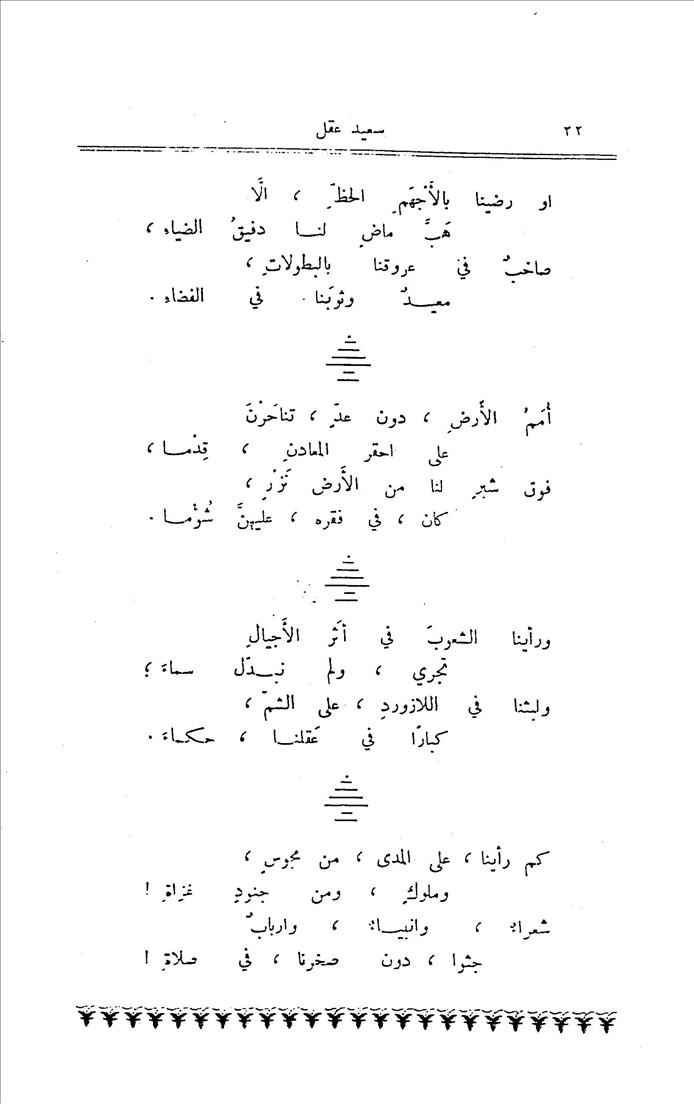 ٣٢ سعيد عقل
او رضينا بالأَجْهَمِ الحظّ ، الَّا
هَبَّ ماضٍ لنا دفيقُ الضياء ،
صاخبٌ في عروقنا بالبطولاتِ ،
معيدٌ وثوبَنا في الفضاء .
أُمَمُ الأَرضِ ، دون عدّ ، تناحَرْنَ
على احقر المعادنِ ، قِدْما ،
فوق شبرٍ لنا من الأَرض نَزْرٍ ،
كان ، في فقره ، عليهنَّ شُؤْما .
ورأينا الشعوبَ في أَثر الأَجيالِ
تجري ، ولم نبدّل سماءَ ؛
ولبثنا في اللازوردِ ، على الشمّ ،
كبارًا في عَقلنا ، حكماءَ .
كم رأينا ، على المدى ، من مجوسٍ ،
وملوكٍ ، ومن جنودِ غزاةِ !
شعراءٌ ، وانبياءٌ ، واربابٌ
جثوا ، دون صخرنا ، في صلاةِ !